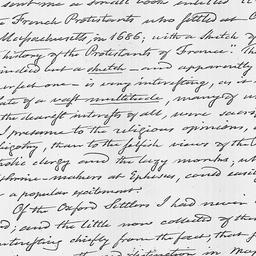 sent me a small book entitled
French Protestants who settled at O
Massachusetts, in 1686; with a sketch of
history of the Protestants of France." Th
indeed but a sketch — and apparently
perfect one — is very interesting, as it
fate of a vast multitude, many of w
the dearest interests of all, were sacr
I presume to the religious opinions,
bigotry, than to the selfish views of the C
olic clergy and the lazy monks; wh
shrine-makers at Ephesus, could easily
a popular excitement.
Of the Oxford Settlers I had never
d; and the little now collected of them
interesting chiefly from the fact, that
and distinction in Mas